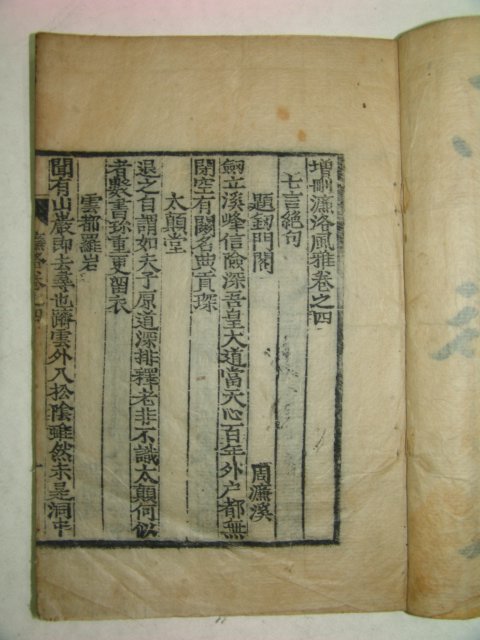 增刪濂洛風雅卷之四
七言絶句
題劒門閣 周濂溪
劒立溪峰信險深吾皇大道當天心百年外户都無
閉空有關名典貢琛
太顚堂
退之自謂如夫子原道深排釋老非不識太顚何似
者數書珍重更留衣
雲都羅岩
聞有山巖即去尋也躋雲外入松陰雖然未是洞中